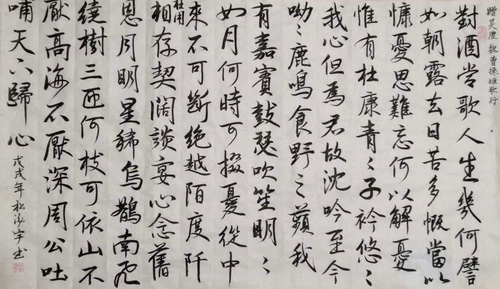 曹操短歌行
對酒當歌人生幾何譬
如朝露去日苦多慨當以
慷憂思難忘何以解憂
惟有杜康青々子衿悠々
我心但為君故沈吟至今
呦々鹿鳴食野之蘋我
有嘉賓鼓瑟吹笙明々
如月何時可掇憂從中
來不可斷絕越陌度阡
枉用
相存契闊談宴心念舊
恩月明星稀烏鵲南飛
繞樹三匝何枝可依山不
厭高海不厭深周公吐
哺天下歸心
戊戌年松泓宇书